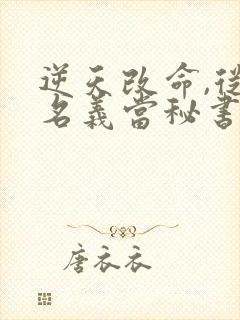 逆天改命,從
名義當秘書
唐衣衣